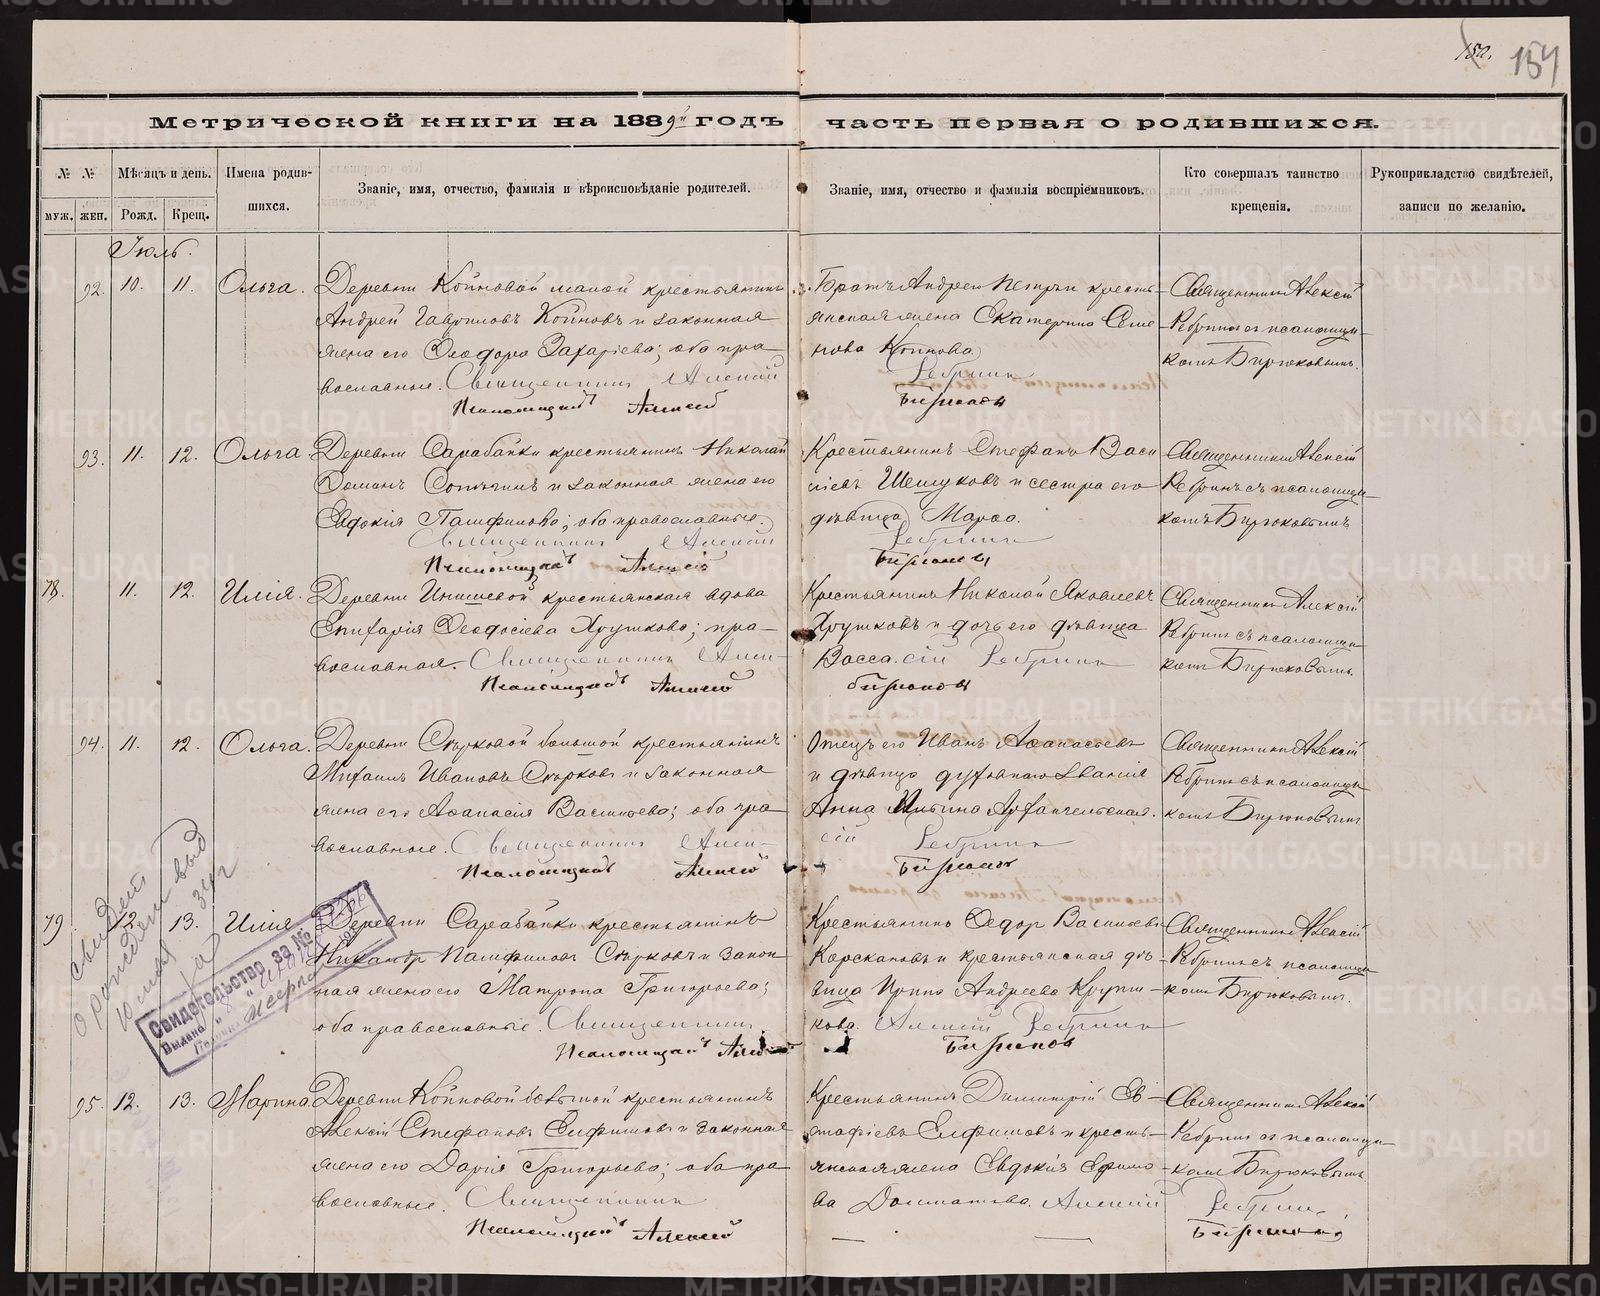 152. 154
Метрической книги на 1889й годъ часть первая о родившихся.
№ №
муж. жен.
Мѣсяцъ и день.
Рожд. Крещ.
Имена родив-
шихся.
Званіе, имя, отчество, фамилія и вѣроисповѣданіе родителей.
Званіе, имя, отчество и фамилія воспріемниковъ.
Кто совершалъ таинство
крещенія.
Рукоприкладство свидѣтелей,
записи по желанію.
Іюль.
92. 10. 11. Ольга.
Деревни Койновой малой крестьянинъ
Андрей Гавриловъ Койновъ и законная
жена его Ѳеодора Захаріева; оба пра-
вославные. Священникъ Алексій
Псаломщикъ Алексей
Братъ Андрея Петръ и кресть-
янская жена Екатерина Семе-
нова Койнова
Ребринъ
Бирюковъ
Священникъ Алексій
Ребринъ съ псаломщи-
комъ Бирюковымъ.
93. 11. 12. Ольга
Деревни Сарабайки крестьянинъ Николай
и законная жена его
Евдокія Памфилова; оба православные.
Священникъ Алексій
Псаломщикъ Алексій
Крестьянинъ Стефанъ Васи
ліевъ Шешуковъ и сестра его
дѣвица Марѳа.
Ребринъ
Бирюковъ
Священникъ Алексій
Ребринъ съ псаломщи-
комъ Бирюковымъ
78. 11. 12. Илія.
Деревни Инишевой крестьянская вдова
Епихарія Ѳеодосіева Хрушкова; пра-
вославная. Священникъ Алек-
Псаломщикъ Алексей
Крестьянинъ Николай Яковлевъ
Хрушковъ и дочь его дѣвица
Васса. сій Ребринъ
Бирюковъ
Священникъ Алексій
Ребринъ съ псаломщи-
комъ Бирюковымъ.
94. 11. 12. Ольга.
Деревни Сѣрковой большой крестьянинъ
Михаилъ Ивановъ Сѣрковъ и законная
жена его Аѳанасія Васильева; оба пра-
вославные. Священникъ Алек-
Псаломщикъ Алексей
Отецъ его Иванъ Аѳанасьевъ
и дѣвица духовнаго званія
Анна Ильина Архангельская.
сій Ребринъ
Бирюковъ
Священникъ Алексій
Ребринъ съ псаломщи-
комъ Бирюковымъ
79. 12. 13. Илія
Деревни Сарабайки крестьянинъ
Никандр Памфиловъ Сѣрковъ и закон-
ная жена его Матрона Григорьева;
оба православные. Священникъ
Псаломщикъ
Крестьянинъ Ѳедор Васильевъ
и крестьянская дѣ-
вица Ирина Андреева
кова. Алексій Ребринъ
Бирюковъ
Священникъ Алексій
Ребринъ съ псаломщи-
комъ Бирюковымъ.
Свидетельство за №
Выдано
95. 12. 13. Марина
Деревни Койновой большой крестьянинъ
Алексій Стефановъ Елфимовъ и законная
жена его Дарія Григорьева; оба пра-
вославные. Священникъ
Псаломщикъ Алексей
Крестьянинъ Димитрій Ев-
стафіевъ Елфимовъ и кресть-
янская жена Евдокія Ефимо-
ва Долматова. Алексій Ребринъ
Бирюковъ
Священникъ Алексій
Ребринъ съ псаломщи-
комъ Бирюковымъ
METRIKI.GASO-URAL.RU